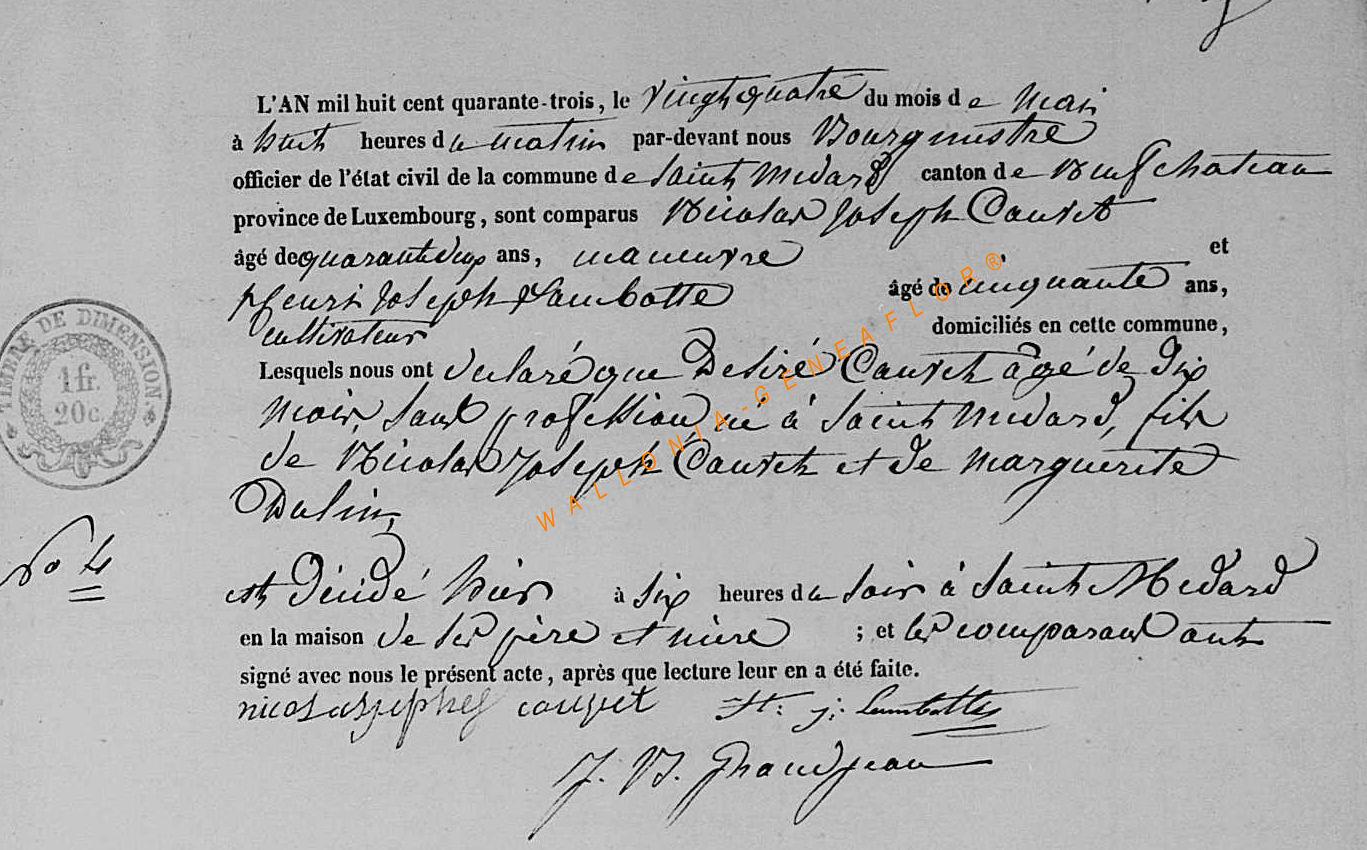 L'AN mil huit cent quarante-trois, le vingt quatre du mois de Mai
à huit heures du matin par-devant nous Bourgmestre
officier de l'état civil de la commune de Saint Médard canton de Neufchateau
province de Luxembourg, sont comparus Nicolas Joseph Cauvet
âgé de quarante deux ans, manuvre et
Henri Joseph Lambotte âgé de cinquante ans,
cultivateur domiciliés en cette commune,
Lesquels nous ont déclaré que Desiré Cauvet âgé de dix
mois, sans profession né à Saint Médard, fils
de Nicolas Joseph Cauvet et de Marguerite
Dulin,
No 4
est décidé hier à six heures du soir à Saint Médard
en la maison de ses père et mère ; et les comparans ont
signé avec nous le présent acte, après que lecture leur en a été faite.
nicolas joseph cauvet H: j: Lambotte
J. B. Grandjean
TIMBRE DE DIMENSION
1 fr.
20 c.
WALLONIA-GENEAFLOR®